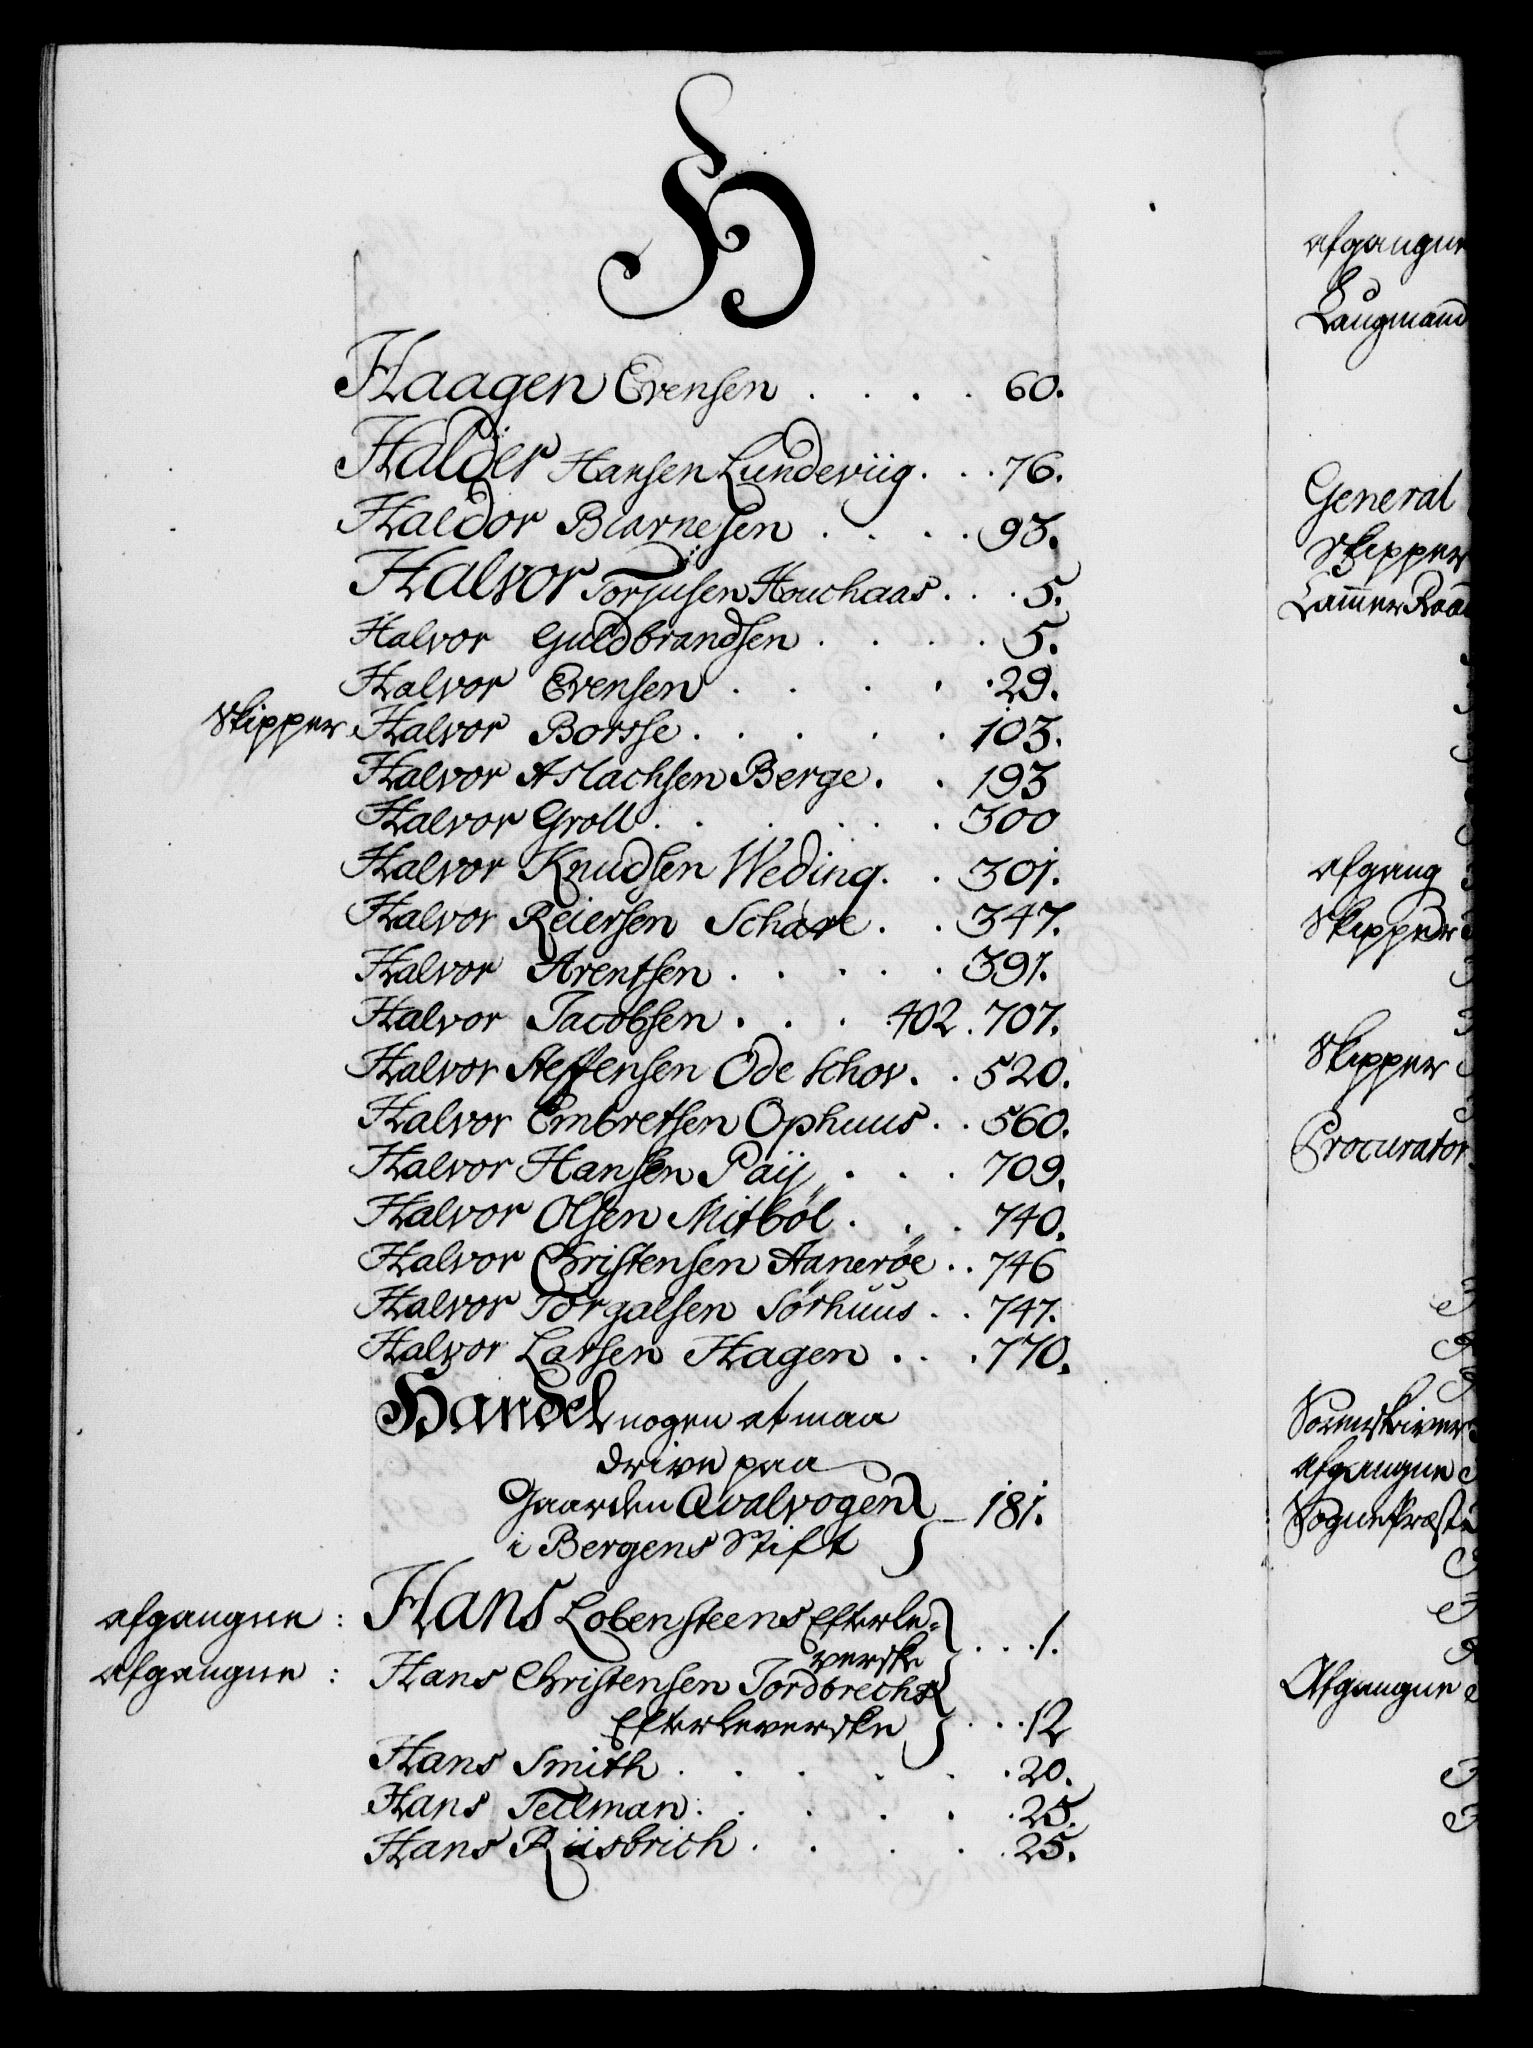 H
Haagen Evensen . . . . 60.
Halder Hansen Lundeviig. . . 76.
Haldor Biarnesen . . . . 93.
Halvor Torjusen Houchaas . . . 5.
Halvor Guldbrandsen . . . . 5.
Halvor Evensen . . . . . 29.
Skipper Halvor Borsse . . . . . 103.
Halvor Aslachsen Berge . . 193
Halvor Groll . . . . . . 300
Halvor Knudsen Weding. . 301.
Halvor Reiersen Schare . . 347.
Halvor Arentsen . . . . . 391.
Halvor Jacobsen . . . 402. 707.
Halvor Steffensen Ode Schov. . 520.
Halvor Embretsen Ophuus . . 560.
Halvor Hansen Paij . . . 709.
Halvor Olsen Mitböl . . . 740.
Halvor Christensen Aaneröe . . 746
Halvor Torgalsen Sörhuus . . 747.
Halvor Larsen Hagen . . . 770.
Handel nogen at maa
drive paa
Gaarden Qvalvogen
i Bergens Stift } 181.
afgangne : Hans Lobensteens Efterle-
verske } . . . 1.
afgangne : Hans Christensen Tordbrechs
Efterleverske } . . . 12
Hans Smith . . . . . 20.
Hans Tellman . . . . . 25.
Hans Riisbrich . . . . . 25.
afgangne
Laugmand
General
Skipper
Cammer Raa
afgang
Skipper
Skipper
Procurator
Sorenskriver
afgangne
Sogne Præst
Afgangne